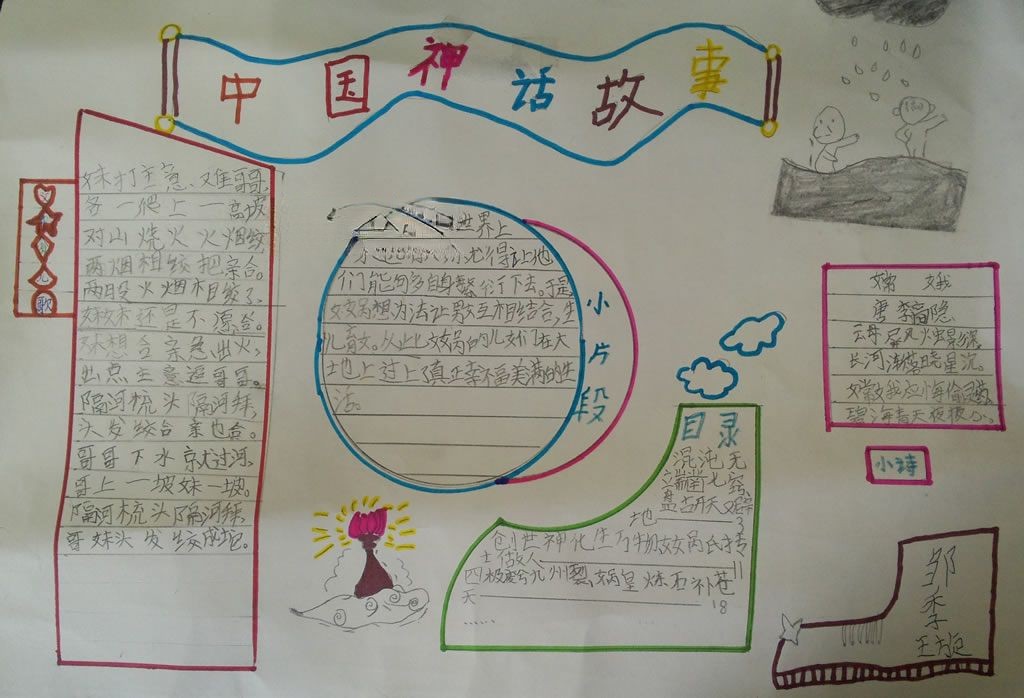 中国神话故事
妹打主意难哥哥,
各一爬上一高坡
对山烧火火烟绞
两烟相绞把亲合。
两段火烟相绞了,
妹妹还是不愿合。
妹想合亲急出火,
出点主意逗哥哥。
隔河梳头隔河拜,
头发绞合亲也合。
哥哥下水求过河,
哥上一坡妹一坡。
隔河梳头隔河拜,
哥妹头发绞成坨。
歌
世界上
得让他
们能够多自身繁衍下去。于是
女娲想办法让男女互相结合,生
儿育女。从此女娲的儿女们在大
地上过上了真正幸福美满的生
活。
小片段
目录
混沌无
端凿七窍,
盘古开天又辟
地——3
创世神化生万物女娲氏抟
土做人——11
四极废兮九州裂,娲皇炼石补苍
天——18
……
嫦娥
唐 李商隐
云母屏风烛影深,
长河渐落晓星沉。
嫦娥应悔偷灵药,
碧海青天夜夜心。
小诗
邹
季